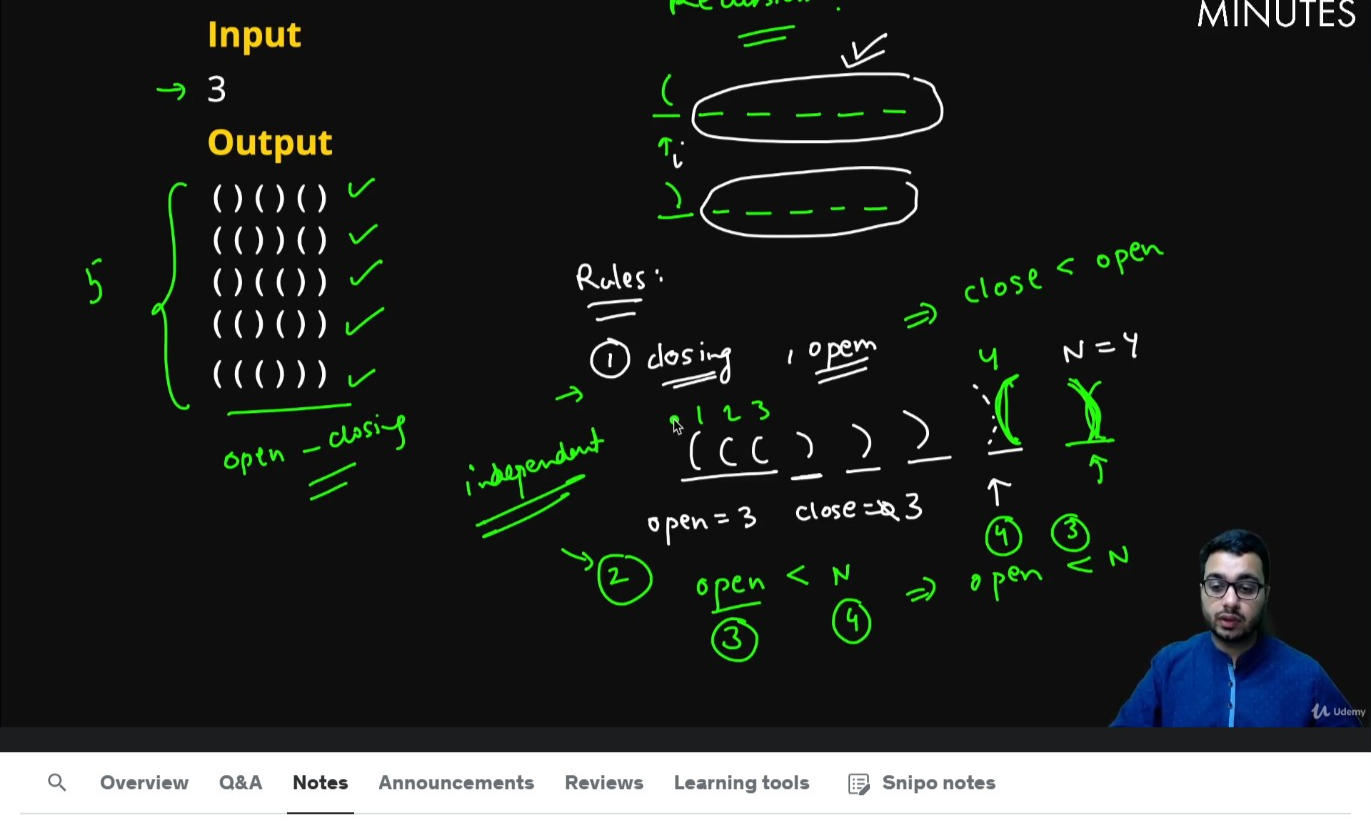 MINUTES
Recursion :
Input
→ 3
Output
( ) ( ) ( ) ✓
( ( ) ) ( ) ✓
( ) ( ( ) ) ✓
( ( ) ( ) ) ✓
( ( ( ) ) ) ✓
5
open - closing
(
↑ i
)
Rules:
① closing , opem
⇒ close < open
4 N = 4
1 2 3
( ( ( ) ) ) ( )
independent
open = 3 close = 3
④ ③
② open < N ⇒ open < N
③ ④
Udemy
Overview Q&A Notes Announcements Reviews Learning tools Snipo notes